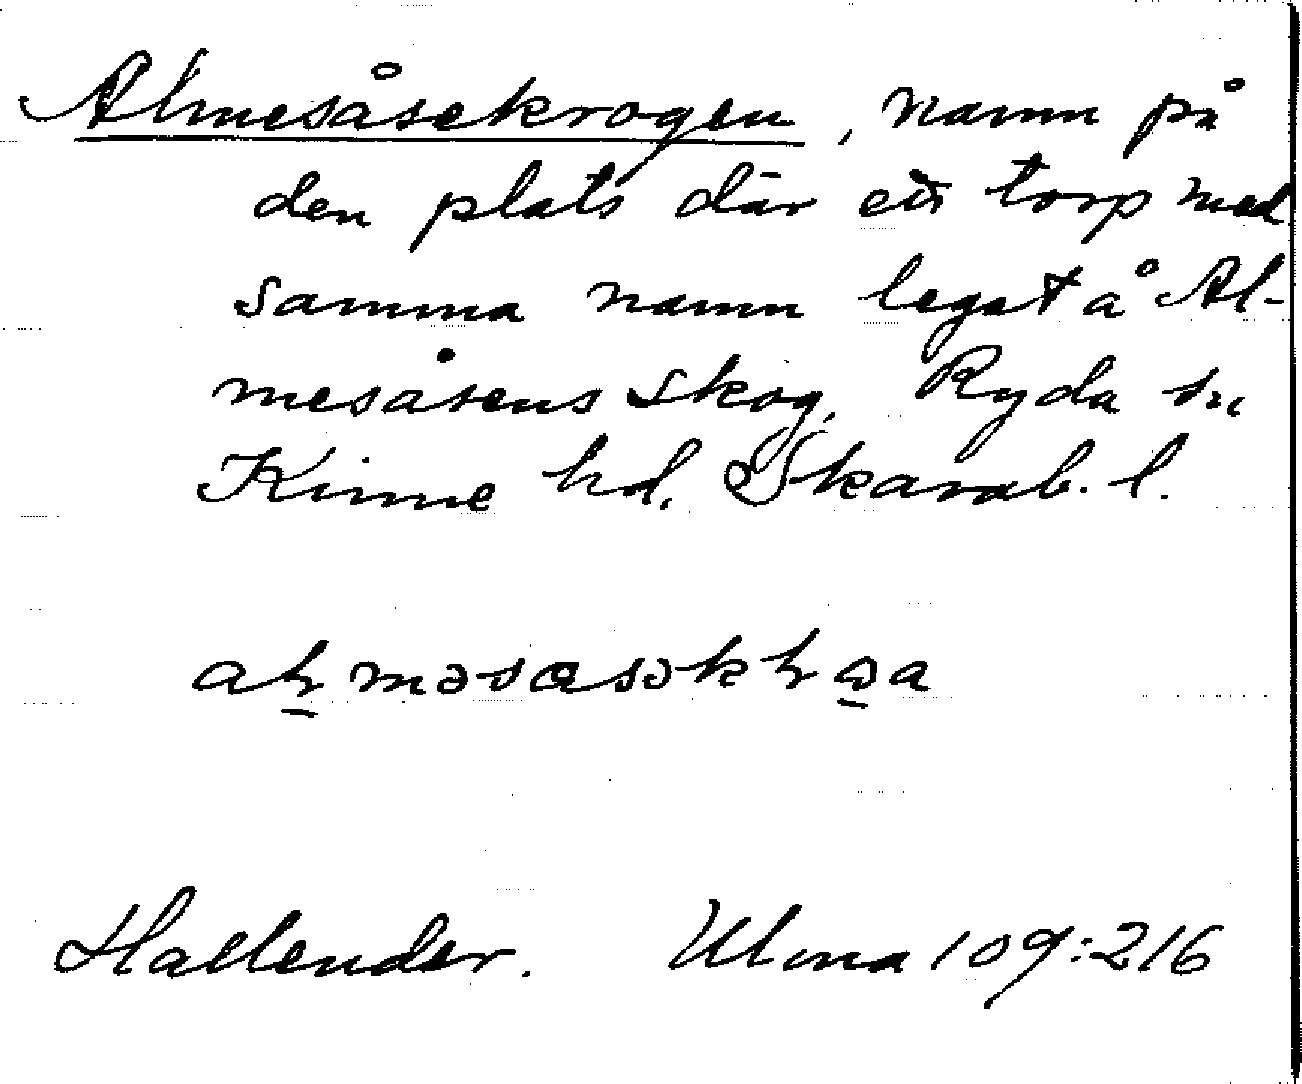 Almesåsekrogen, namn på
den plats där ett torp med
samma namn legat å Al-
mesåsens skog, Ryda sn
Kinne hd. Skarab. l.
Hallender. Ulma 109:216